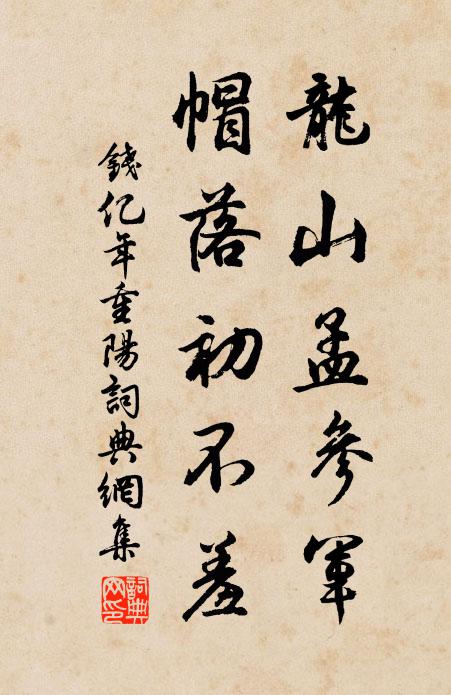 龍山孟參軍
帽落初不羞
錢億年重陽詞典網集
詞典網印